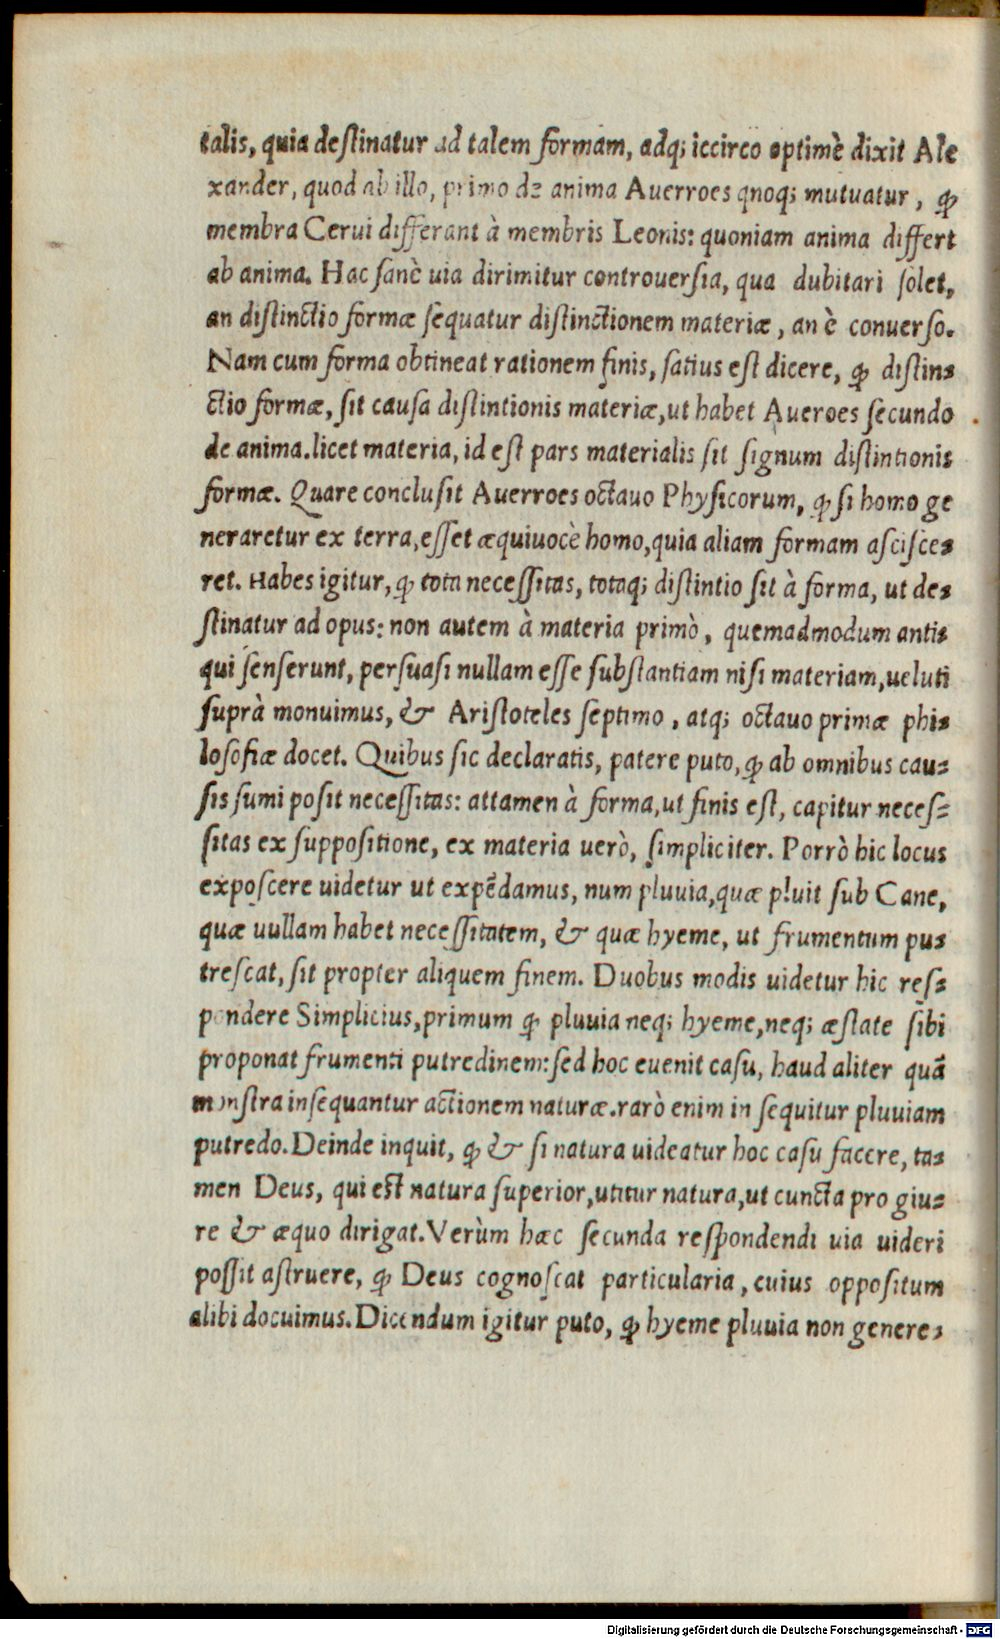 talis, quia deſtinatur ad talem formam, adq; iccirco optimè dixit Ale
xander, quod ab illo, primo de anima Auerroes qnoq; mutuatur, ꝙ
membra Cerui differant à membris Leonis: quoniam anima differt
ab anima. Hac ſanè uia dirimitur controuerſia, qua dubitari ſolet,
an diſtinctio formæ ſequatur diſtinctionem materiæ, an è conuerſo.
Nam cum forma obtineat rationem finis, ſatius eſt dicere, ꝙ diſtin⸗
ctio formæ, ſit cauſa diſtintionis materiæ, ut habet Aueroes ſecundo
de anima. licet materia, id eſt pars materialis ſit ſignum diſtintionis
formæ. Quare concluſit Auerroes octauo Phyſicorum, ꝙ ſi homo ge
neraretur ex terra, eſſet æquiuocè homo, quia aliam formam aſciſce⸗
ret. Habes igitur, ꝙ tota neceſſitas, totaq; diſtintio ſit à forma, ut de⸗
ſtinatur ad opus: non autem à materia primò, quemadmodum anti⸗
qui ſenſerunt, perſuaſi nullam eſſe ſubſtantiam niſi materiam, ueluti
ſuprà monuimus, & Ariſtoteles ſeptimo, atq; octauo primæ phi⸗
loſofiæ docet. Quibus ſic declaratis, patere puto, ꝙ ab omnibus cau⸗
ſis ſumi poſit neceſſitas: attamen à forma, ut finis eſt, capitur neceſ⸗
ſitas ex ſuppoſitione, ex materia uerò, ſimpliciter. Porrò hic locus
expoſcere uidetur ut expēdamus, num pluuia, quæ pluit ſub Cane,
quæ uullam habet neceſſitatem, & quæ hyeme, ut frumentum pu⸗
treſcat, ſit propter aliquem finem. Duobus modis uidetur hic reſ⸗
pondere Simplicius, primum ꝙ pluuia neq; hyeme, neq; æſtate ſibi
proponat frumenti putredinem: ſed hoc euenit caſu, haud aliter quā
monſtra inſequantur actionem naturæ. rarò enim in ſequitur pluuiam
putredo. Deinde inquit, ꝙ & ſi natura uideatur hoc caſu facere, ta⸗
men Deus, qui eſt natura ſuperior, utitur natura, ut cuncta pro giu⸗
re & æquo dirigat. Verùm hæc ſecunda reſpondendi uia uideri
poſſit aſtruere, ꝙ Deus cognoſcat particularia, cuius oppoſitum
alibi docuimus. Dicendum igitur puto, ꝙ hyeme pluuia non genere⸗
Digitalisierung gefördert durch die Deutsche Forschungsgemeinschaft - DFG